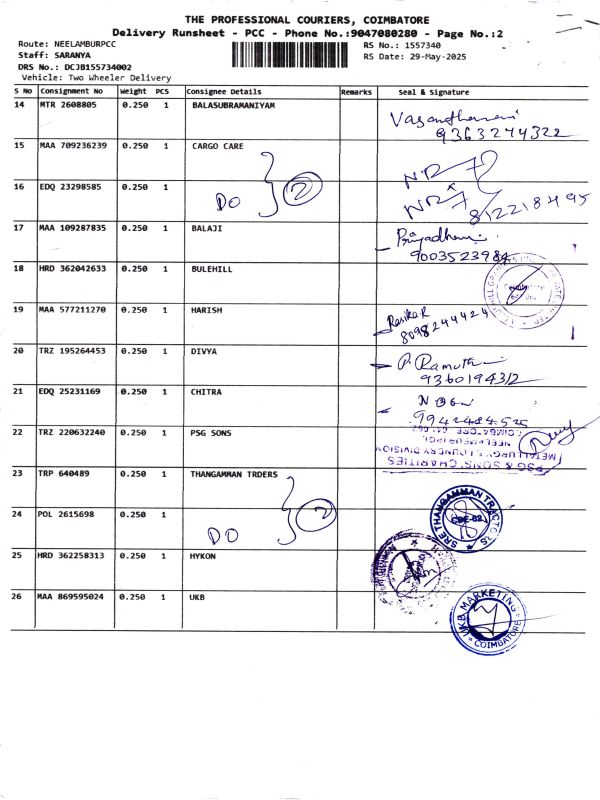 THE PROFESSIONAL COURIERS, COIMBATORE
Delivery Runsheet - PCC - Phone No.:9047080280 - Page No.:2
Route: NEELAMBURPCC
RS No.: 1557340
Staff: SARANYA
RS Date: 29-May-2025
DRS No.: DCJB155734002
Vehicle: Two Wheeler Delivery
S No Consignment No Weight PCS Consignee Details Remarks Seal & Signature
14 MTR 2608805 0.250 1 BALASUBRAMANIYAM
9363274322
15 MAA 709236239 0.250 1 CARGO CARE
16 EDQ 23298585 0.250 1
DO 2
8122218495
17 MAA 109287835 0.250 1 BALAJI
Priyadharani
9003523984
18 HRD 362042633 0.250 1 BULEHILL
19 MAA 577211270 0.250 1 HARISH
Rasika R
8098244424
20 TRZ 195264453 0.250 1 DIVYA
9360194312
21 EDQ 25231169 0.250 1 CHITRA
9942484525
22 TRZ 220632240 0.250 1 PSG SONS
PSG & SONS' CHARITIES
METALLURGY & FOUNDRY DIVISION
NEELAMBUR (PO),
23 TRP 640489 0.250 1 THANGAMMAN TRDERS
24 POL 2615698 0.250 1
DO 2
SRE THANGAMMAN TRACTORS
CBE-62
25 HRD 362258313 0.250 1 HYKON
26 MAA 869595024 0.250 1 UKB
UKB MARKETING
COIMBATORE